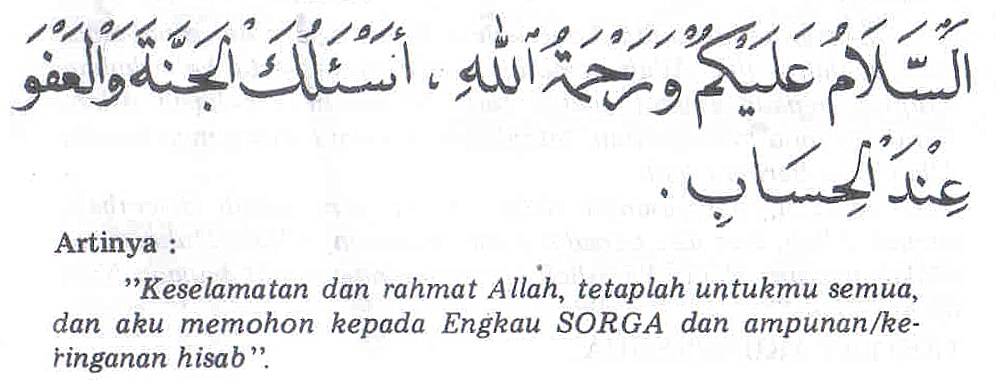 اَلسَّلَامُ عَلَيْكُمْ وَرَحْمَةُ اللّٰهِ ، أَسْئَلُكَ الْجَنَّةَ وَالْعَفْوَ
عِنْدَ الْحِسَابِ .
Artinya :
"Keselamatan dan rahmat Allah, tetaplah untukmu semua,
dan aku memohon kepada Engkau SORGA dan ampunan/ke-
ringanan hisab".